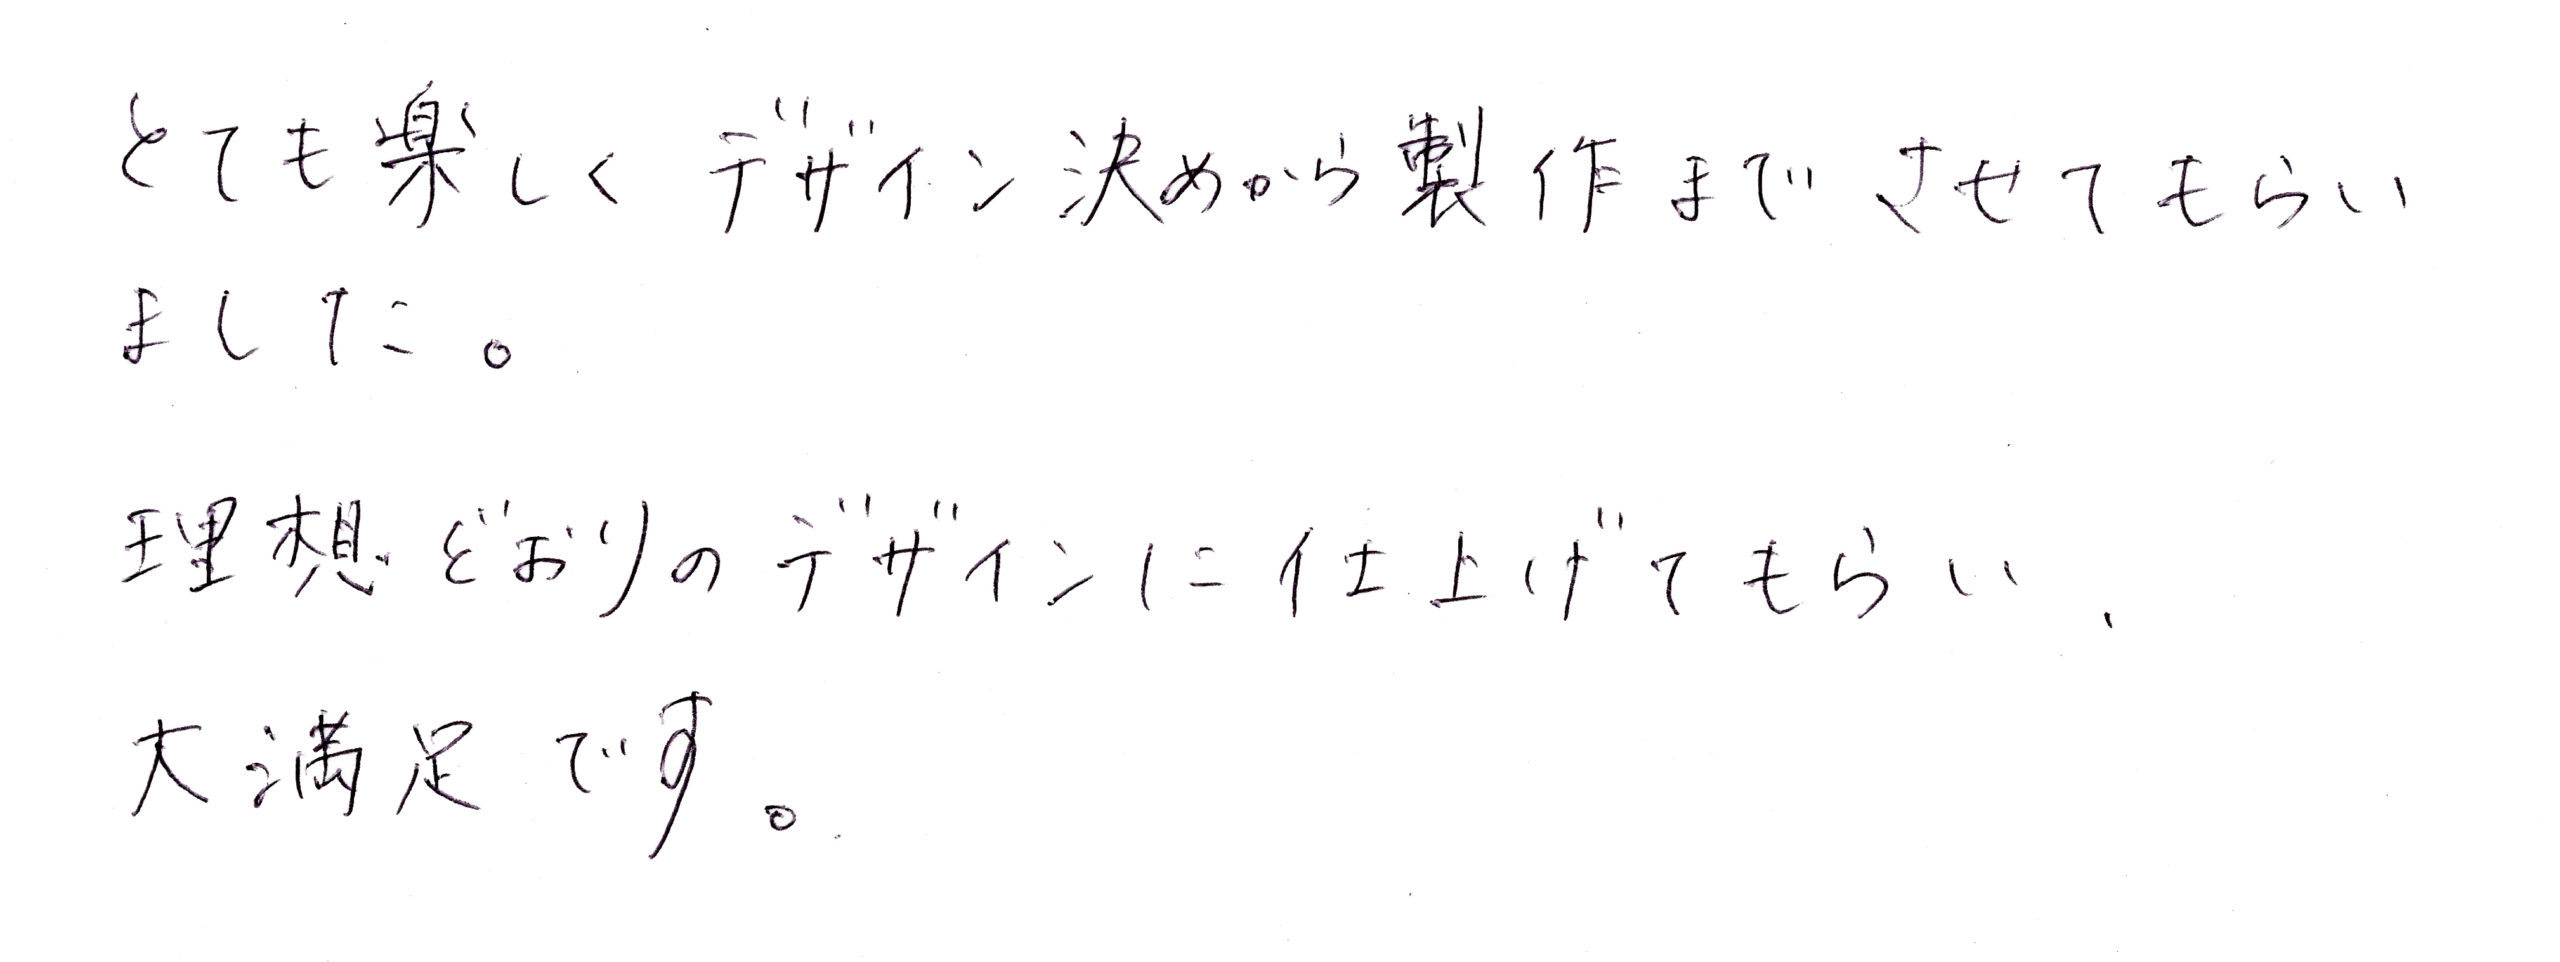 とても楽しくデザイン決めから製作までさせてもらい
ました。
理想どおりのデザインに仕上げてもらい、
大満足です。